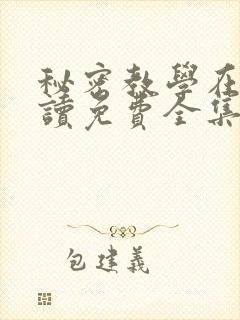 秘密教學在
讀免費全集
包建義